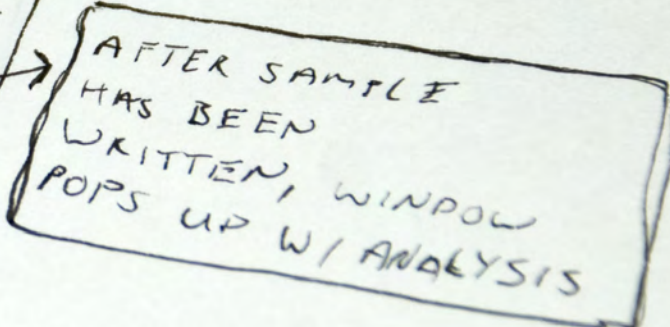 AFTER SAMPLE
HAS BEEN
WRITTEN, WINDOW
POPS UP W/ ANALYSIS